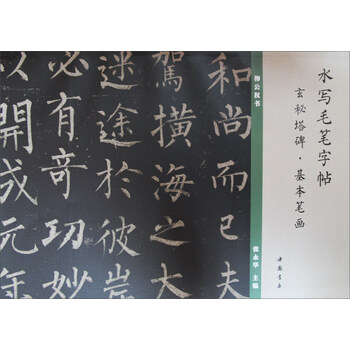 水写毛笔字帖
玄秘塔碑·基本笔画
中国书店
柳公权书
张永华 主编
和尚而已夫
駕横海之大
迷途於彼岸
必有竒功妙
以開成元年